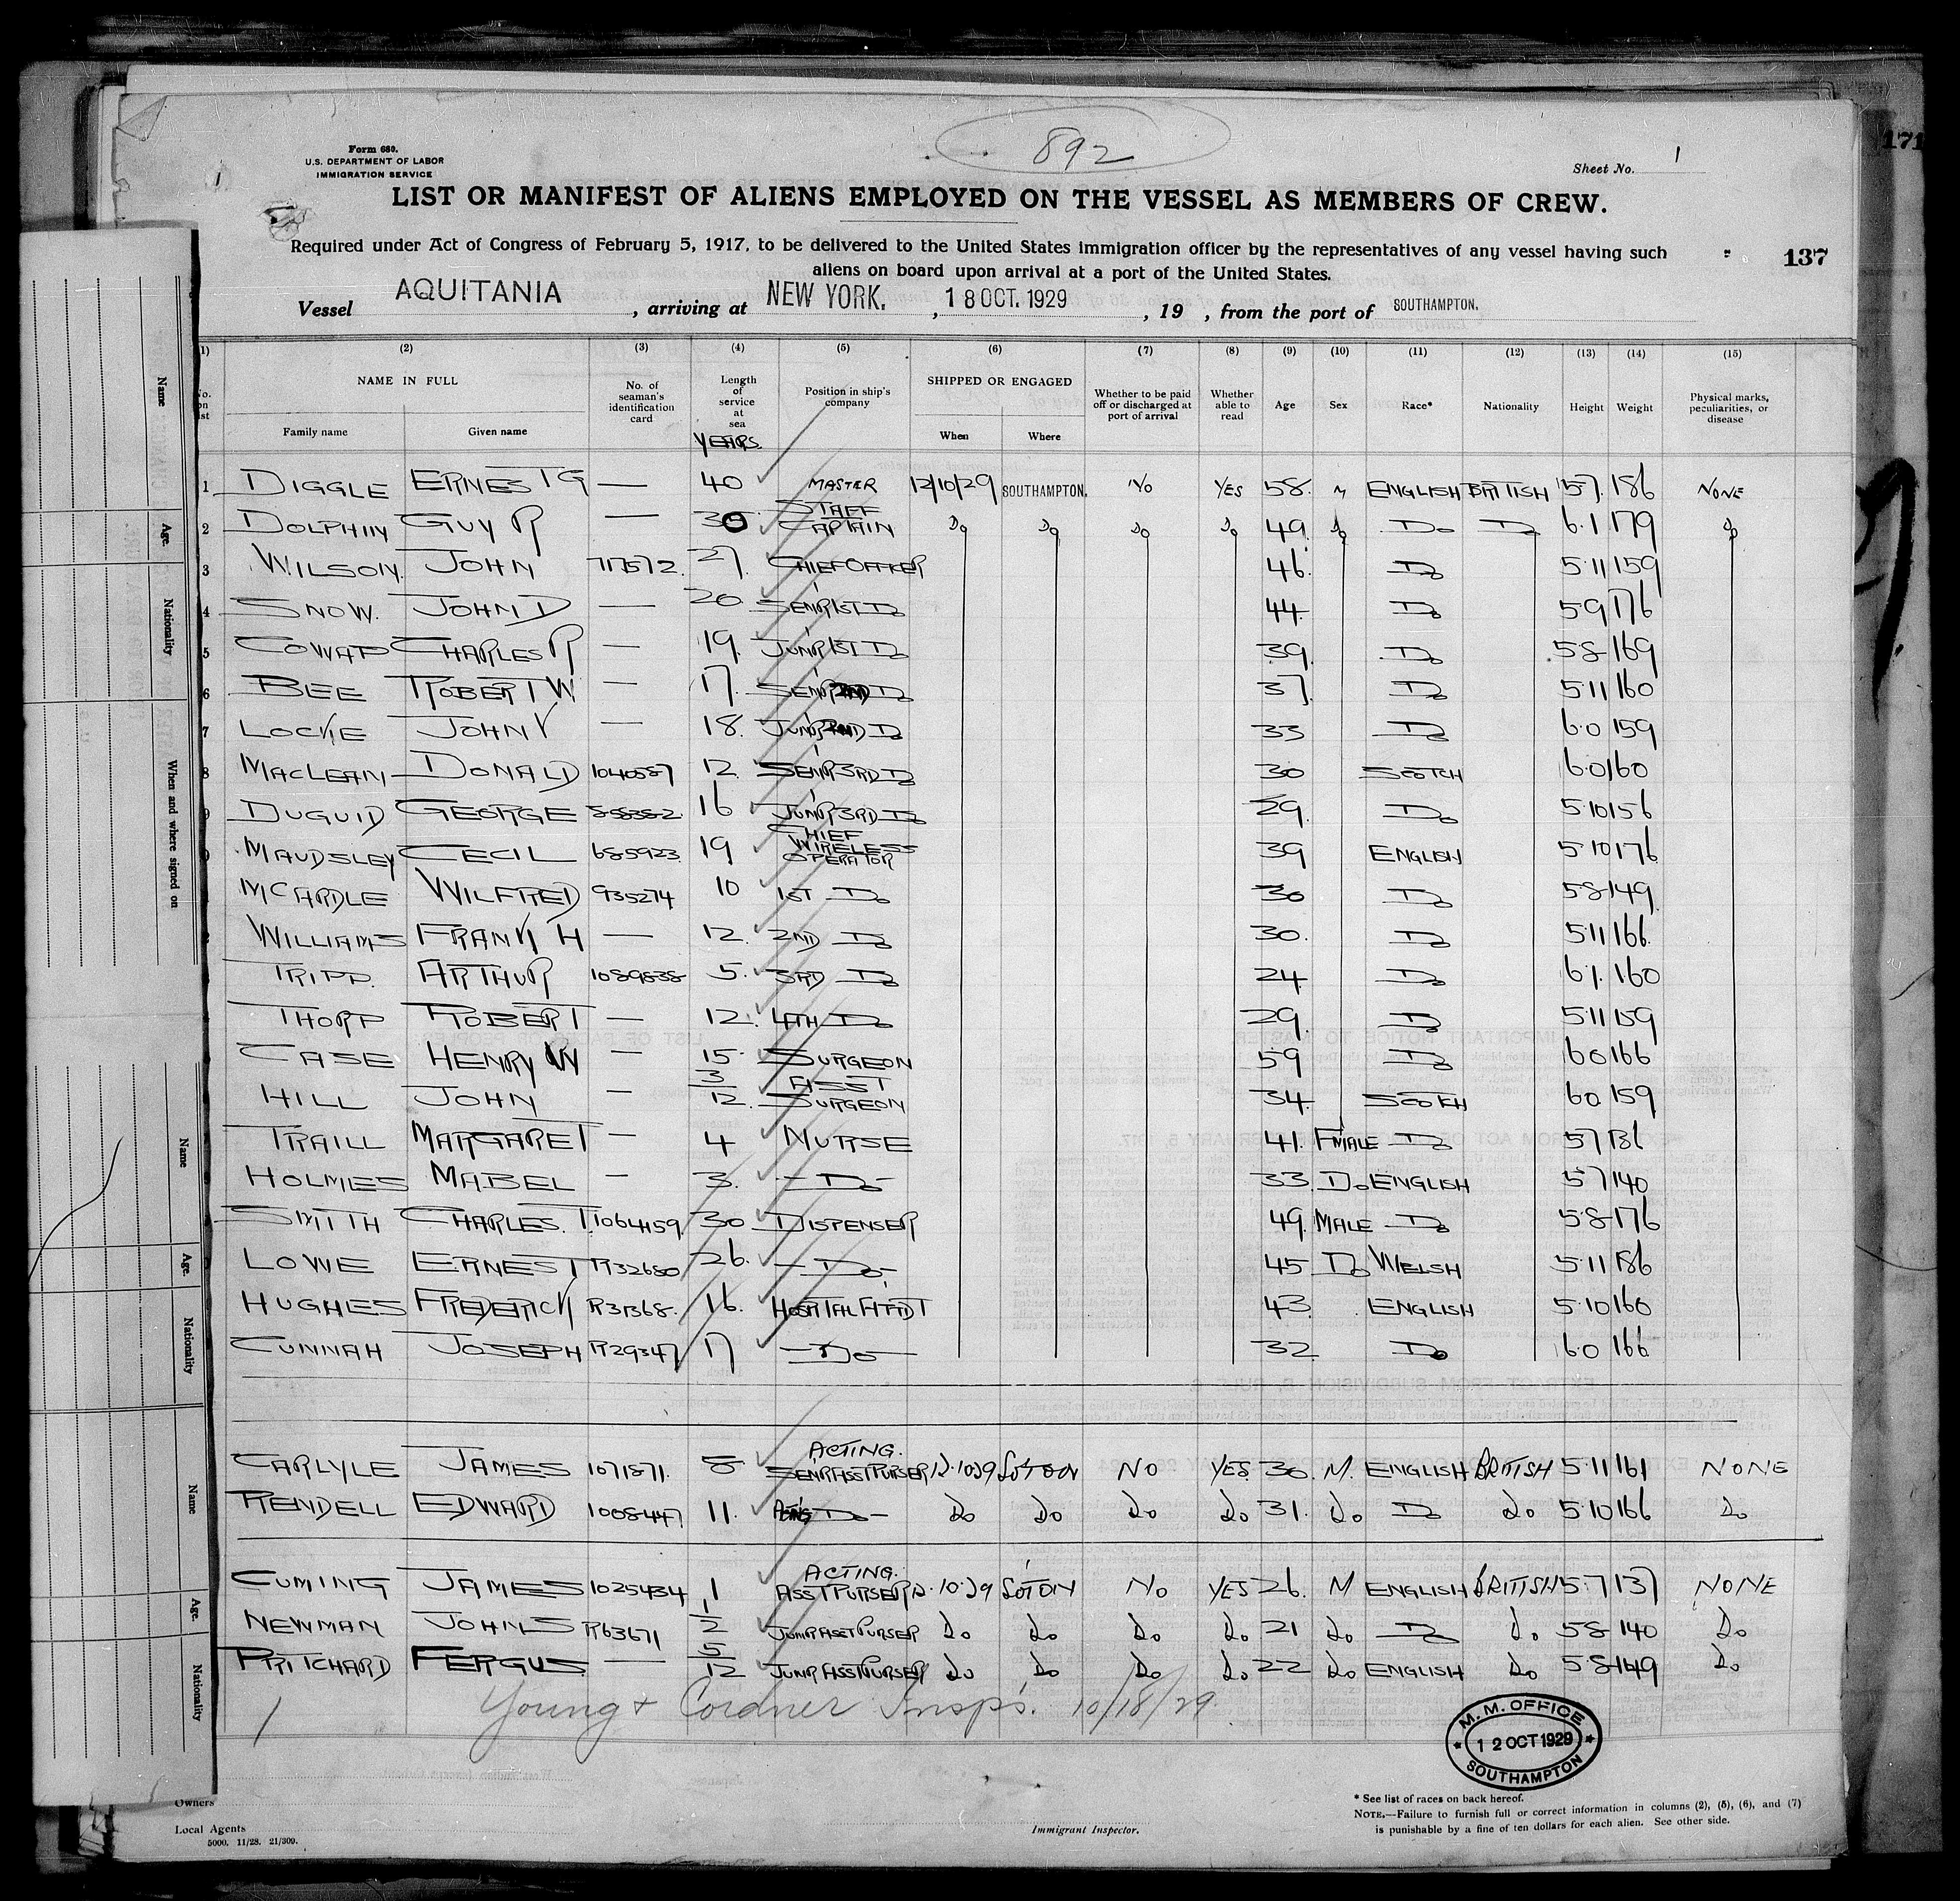 171
892
Form 680.
U.S. DEPARTMENT OF LABOR
IMMIGRATION SERVICE
Sheet No. 1
1
LIST OR MANIFEST OF ALIENS EMPLOYED ON THE VESSEL AS MEMBERS OF CREW.
Required under Act of Congress of February 5, 1917, to be delivered to the United States immigration officer by the representatives of any vessel having such
aliens on board upon arrival at a port of the United States.
137
Vessel AQUITANIA , arriving at NEW YORK. , 18 OCT. 1929 , 19 , from the port of SOUTHAMPTON.
(2) (3) (4) (5) (6) (7) (8) (9) (10) (11) (12) (13) (14) (15)
No. on list NAME IN FULL Family name Given name No. of seaman's identification card Length of service at sea YEARS. Position in ship's company SHIPPED OR ENGAGED When Where Whether to be paid off or discharged at port of arrival Whether able to read Age Sex Race* Nationality Height Weight Physical marks, peculiarities, or disease
1 DIGGLE ERNEST G — 40 MASTER 12/10/29 SOUTHAMPTON. NO YES 58. M ENGLISH BRITISH 5 7. 186 NONE
2 DOLPHIN GUY R — 30 STAFF CAPTAIN Do Do Do Do 49 Do Do Do 6.1 179 Do
3 WILSON. JOHN 717572. 27. CHIEF OFFICER 46. Do 5.11 159
4 SNOW. JOHN D — 20 SENR 1ST Do 44 Do 5.9 176
5 COWAP CHARLES R — 19. JUNR 1ST Do 39. Do 5.8 169
6 BEE ROBERT W — 17. SENR 2ND Do 37. Do 5.11 160
7 LOCKE JOHN V — 18. JUNR 2ND Do 33 Do 6.0 159
8 MACLEAN DONALD 1040587 12. SENR 3RD Do 30 SCOTCH 6.0 160
9 DUGUID GEORGE 16 JUNR 3RD Do 29. Do 5.10 156
MAUDSLEY CECIL 685923 19 CHIEF WIRELESS OPERATOR 39 ENGLISH 5.10 176
MCARDLE WILFRED 935274 10 1ST Do 30 Do 5.8 149
WILLIAMS FRANK H — 12. 2ND Do 30. Do 5.11 166.
TRIPP. ARTHUR 1089838 5. 3RD Do 24 Do 6.1. 160
THORP ROBERT — 12. 4TH Do 29. Do 5.11 159
CASE HENRY W — 15 SURGEON 59 Do 6 0 166
HILL JOHN — 3/12. ASST SURGEON 34 SCOTCH 6.0 159
TRAILL MARGARET — 4 NURSE 41. FMALE Do 5 7 136
HOLMES MABEL — 3. Do 33. Do ENGLISH 5.7 140
SMITH CHARLES. T 1064159 30 DISPENSER 49. MALE Do 5.8 176
LOWE ERNEST R32680 26. Do 45 Do WELSH 5.11 186
HUGHES FREDERICK R31368. 16. HOSPITAL ATTDT 43. ENGLISH 5.10 160
CUNNAH JOSEPH R29347 17 Do 32 Do 6.0 166
CARLYLE JAMES 1071871. 8 ACTING. SENR ASST PURSER 12.10.29 SOTON NO YES 30. M. ENGLISH BRITISH 5.11 161 NONE
RENDELL EDWARD 1008447 11. ACTING Do Do Do Do Do 31. Do Do Do 5.10 166 Do
CUMING JAMES 1025434 1 ACTING. ASST PURSER 12.10.29 SOTON NO YES 26. M ENGLISH BRITISH 5.7 137 NONE
NEWMAN JOHN S R63671 1/2 JUNR ASST PURSER Do Do Do Do 21 Do Do Do 5.8 140 Do
PRITCHARD FERGUS — 5/12 JUNR ASST PURSER Do Do Do Do 22 Do ENGLISH Do 5.8 149 Do
Young & Cordner Insps. 10/18/29.
M. M. OFFICE
12 OCT 1929
SOUTHAMPTON
Owners
Local Agents
5000. 11/28. 21/309.
Immigrant Inspector.
* See list of races on back hereof.
NOTE.—Failure to furnish full or correct information in columns (2), (5), (6), and (7)
is punishable by a fine of ten dollars for each alien. See other side.
Name
Age.
Nationality
When and where signed on
Name
Age.
Nationality
Name
Age.
Nationality